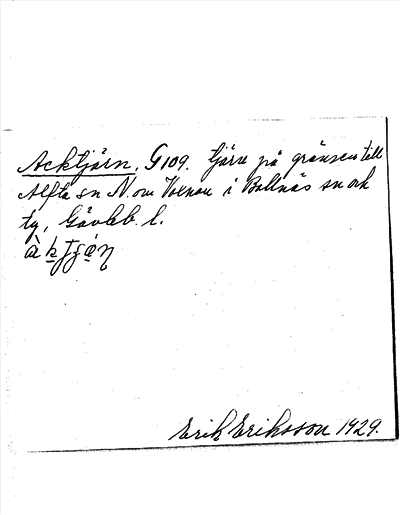 Acktjärn, G109. tjärn på gränsen till
Alfta sn N om Voxnan i Bollnäs sn och
tg, Gävleb. l.
Erik Eriksson 1929.